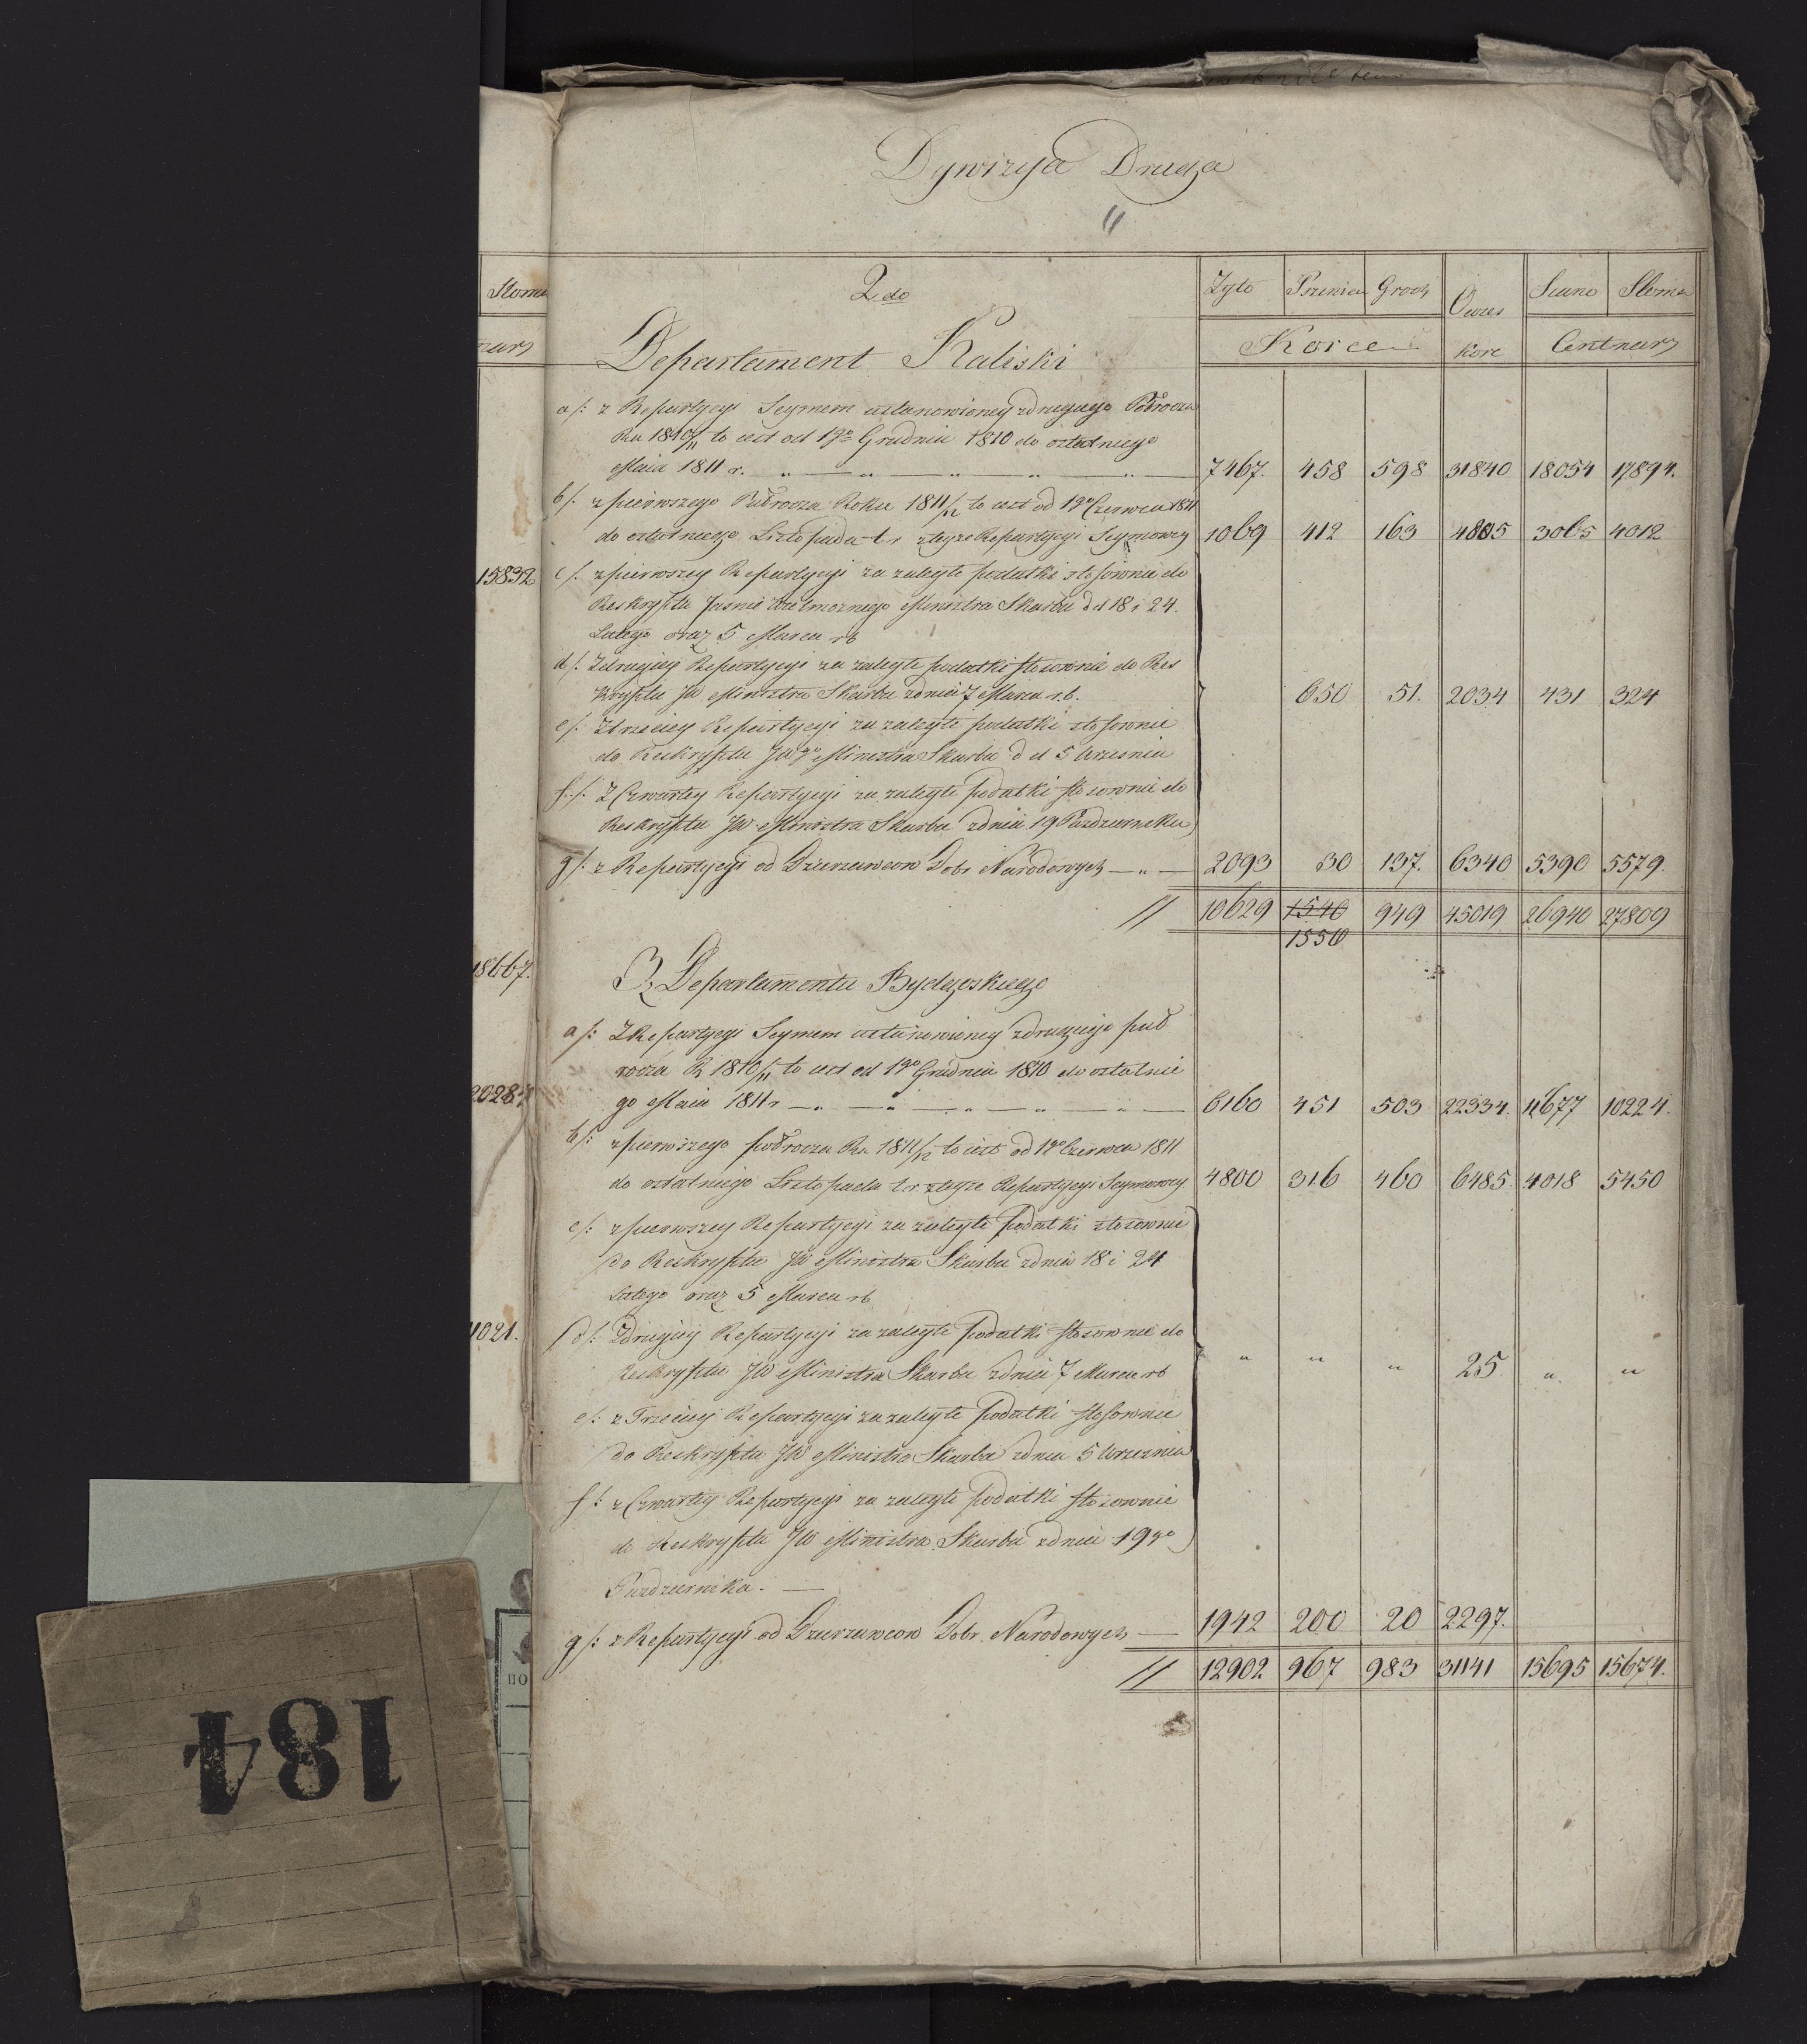 Dywizya Druga
Słoma
15832
18667.
2028
1021.
184
ПО
2do
Żyto Pszenica Groch Owies Siano Słoma
Korce Korc Centnary
Departament Kaliski
a/: z Repartycyi Seymem ustanowioney z drugiego Półrocza
Ru 1810/11 to iest od 1go Grudnia 1810 do ostatniego
Maia 1811 r. 7467. 458 598 31840 18054 17894.
b/: z pierwszego Półrocza Roku 1811/12 to iest od 1go Czerwca 1811
do ostatniego Listopada t r z teyże Repartycyi Seymowey 1069 412 163 4805 3065 4012
c/: z pierwszey Repartycyi za zaległe podatki stosownie do
Reskryptu Jaśnie Wielmożnego Ministra Skarbu d d 18 i 24.
Lutego oraz 5 Marca rb
d/: Z drugiey Repartycyi za zaległe podatki stosownie do Res
kryptu JW Ministra Skarbu z dnia 7 Marca r.b. 650 51. 2034 431 324
e/: Z trzeciey Repartycyi za zaległe podatki stosownie
do Reskryptu JWgo Ministra Skarbu d d 5 Września
f:/: Z Czwartey Repartycyi za zaległe podatki stosownie do
Reskryptu JW Ministra Skarbu z dnia 19 Pazdziernika
g/: z Repartycyi od Dzierzawcow Dobr Narodowych 2093 30 137. 6340 5390 5579.
// 10629 1540 949 45019 26940 27809
1550
Z Departamentu Bydgoskiego
a/: Z Repartycyi Seymem ustanowioney z drugiego pół
rocza R 1810/11 to iest od 1go Grudnia 1810 do ostatnie
go Maia 1811 r 6160 451 503 22334. 11677 10224.
b/: z pierwszego półrocza Ru 1811/12 to iest od 1go Czerwca 1811
do ostatniego Listopada t r. z teyże Repartycyi Seymowey 4800 316 460 6485. 4018 5450
c/: z pierwszey Repartycyi za zaległe podatki stosownie
do Reskryptu JW Ministra Skarbu z dnia 18 i 24
Lutego oraz 5 Marca rb
d/: Z drugiey Repartycyi za zaległe podatki stosownie do
Reskryptu JW Ministra Skarbu z dnia 7 Marca rb " " " 25 " "
e/: z Trzeciey Repartycyi za zaległe podatki stosownie
do Reskryptu JW Ministra Skarbu z dnia 5 Września
f/: z Czwartey Repartycyi za zaległe podatki stosownie
do Reskryptu JW Ministra Skarbu z dnia 19go
Pazdziernika.
g/: z Repartycyi od Dzierzawcow Dobr Narodowych 1942 200 20 2297.
// 12902 967 983 31141 15695 15674.